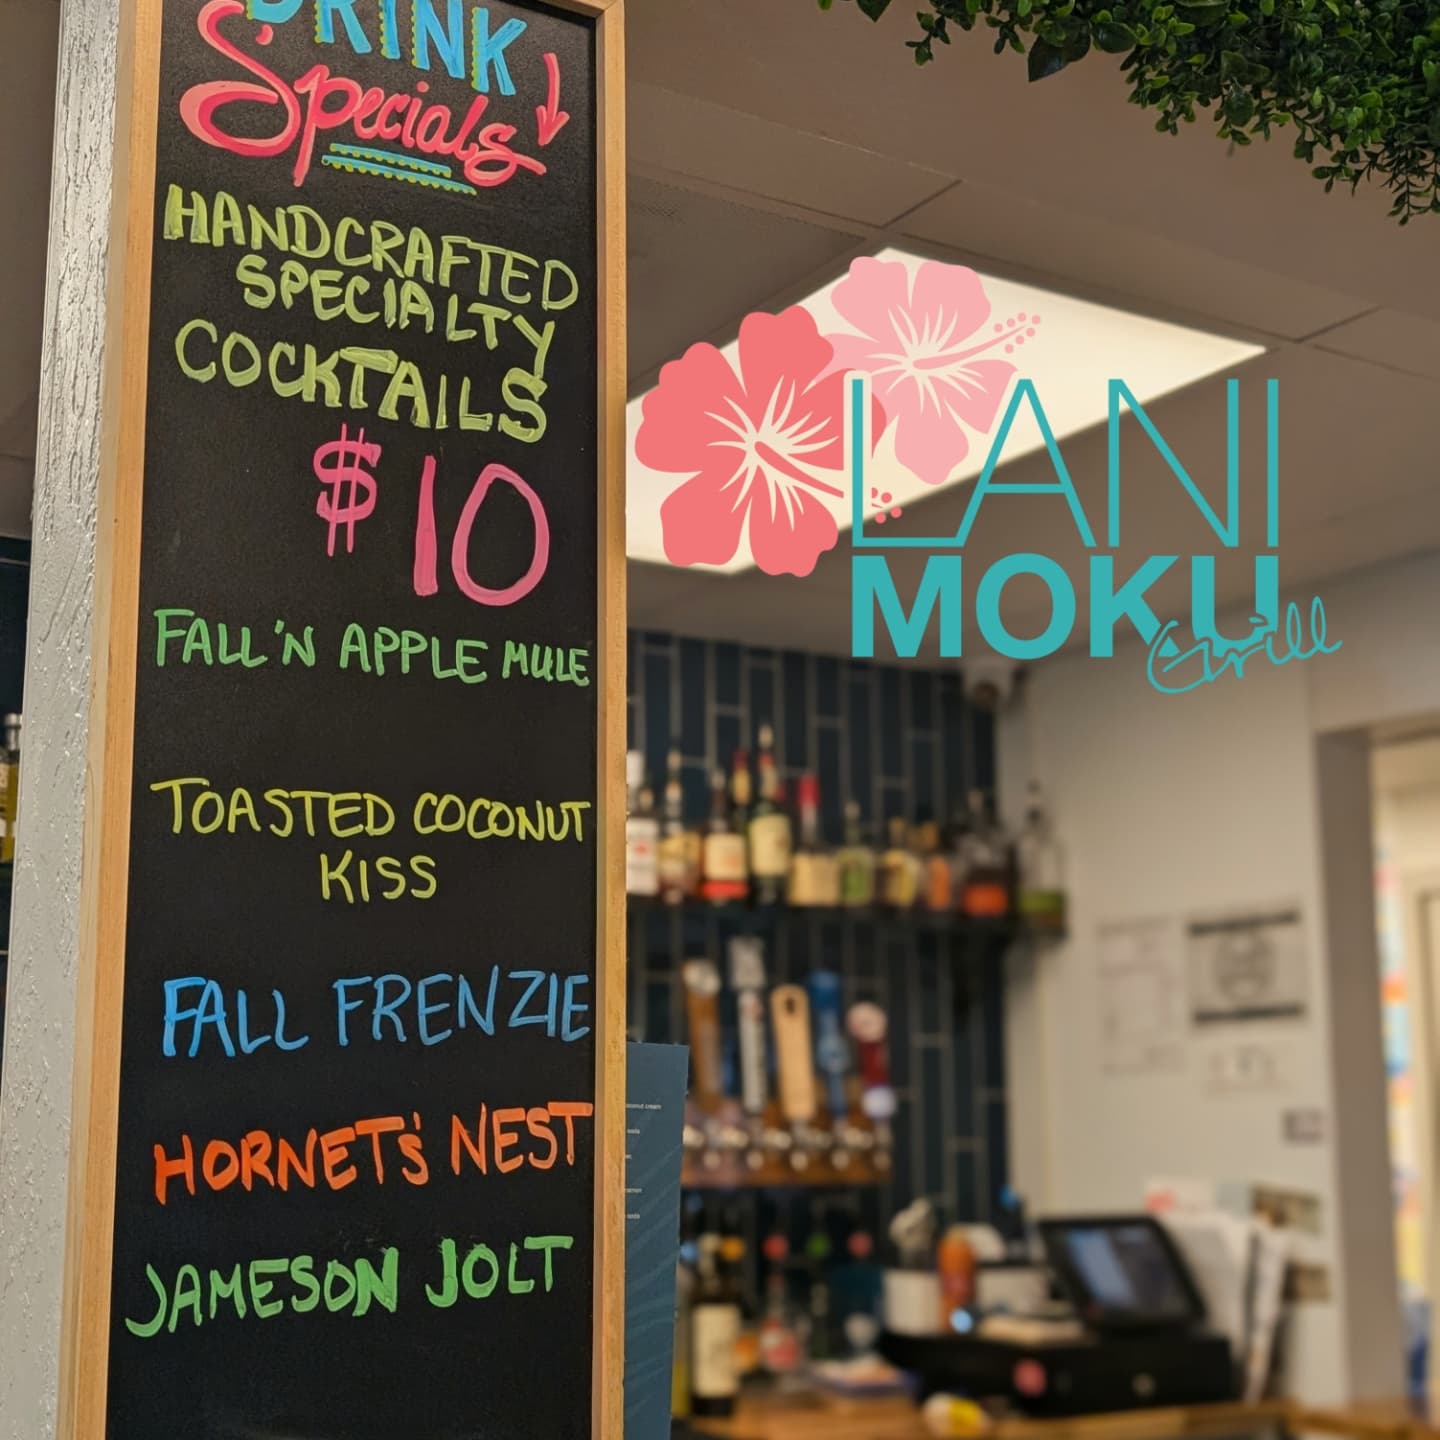 DRINK
Specials
HANDCRAFTED
SPECIALTY
COCKTAILS
$10
FALL'N APPLE MULE
TOASTED COCONUT
KISS
FALL FRENZIE
HORNET'S NEST
JAMESON JOLT
LANI
MOKU
Grill